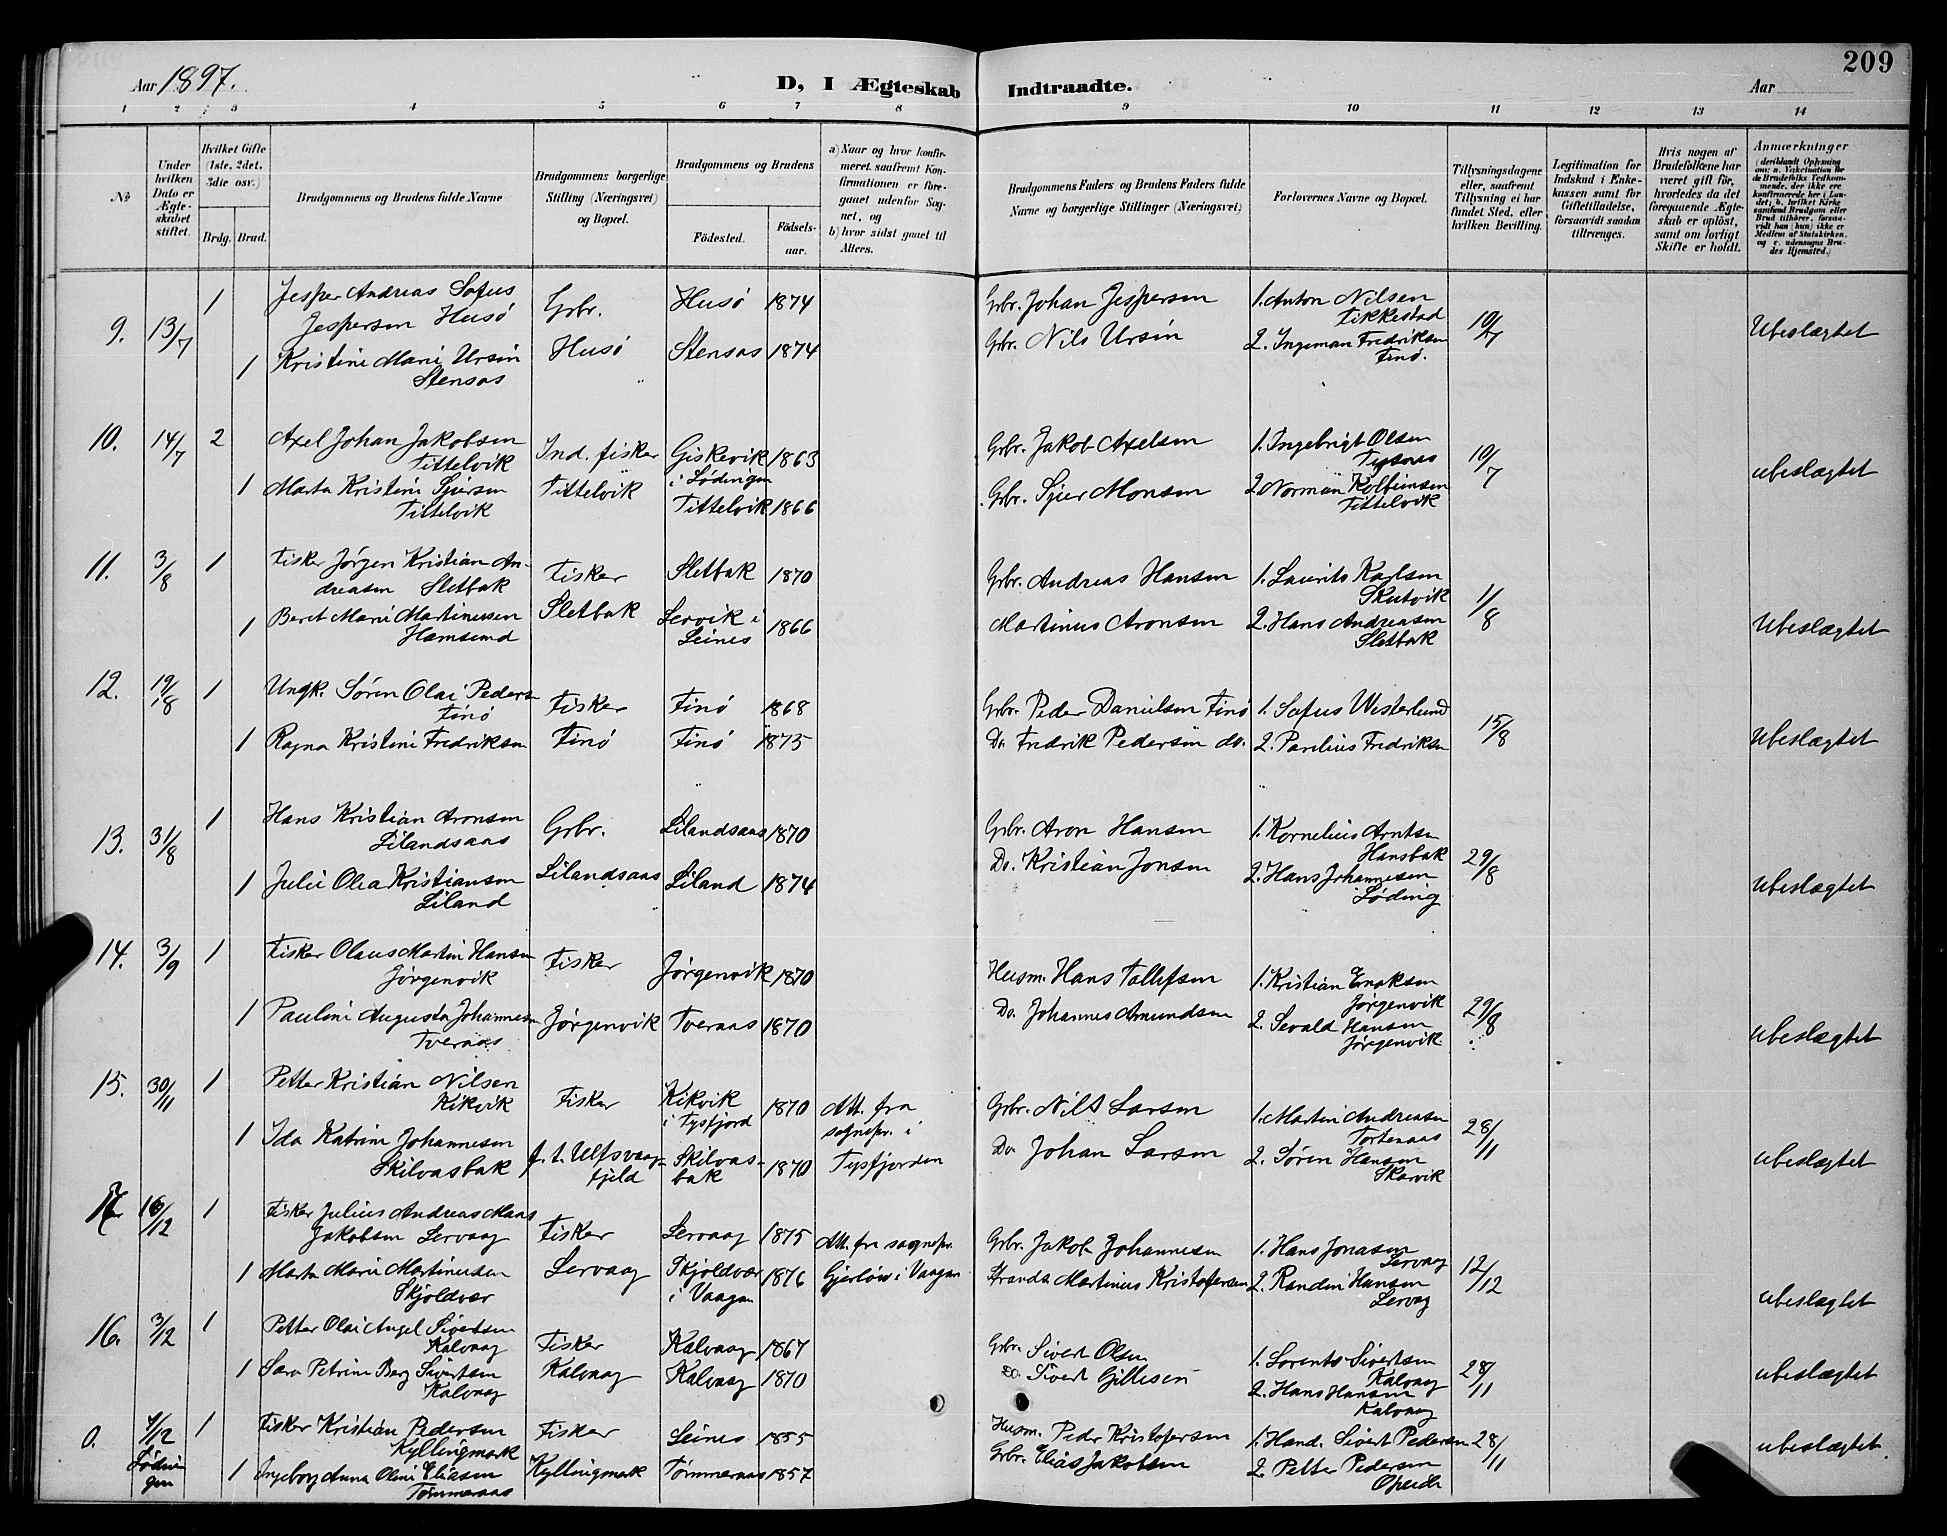 Aar 1897.
D, I Ægteskab Indtraadte.
Aar
209
1 2 3 4 5 6 7 8 9 10 11 12 13 14
No
Under hvilken Dato er Ægteskabet stiftet.
Hvilket Gifte (1ste, 2det, 3die osv.)
Brdg. Brud.
Brudgommens og Brudens fulde Navne
Brudgommens borgerlige Stilling (Næringsvei) og Bopæl.
Brudgommens og Brudens
Födested.
Födselsaar.
a) Naar og hvor konfirmeret saafremt Konfirmationen er foregaaet udenfor Sognet, og
b) hvor sidst gaaet til Alters.
Brudgommens Faders og Brudens Faders fulde Navne og borgerlige Stillinger (Næringsvei)
Forlovernes Navne og Bopæl.
Tillysningsdagene eller, saafremt Tillysning ei har fundet Sted, efter hvilken Bevilling.
Legitimation for Indskud i Enkekassen samt for Giftetilladelse, forsaavidt saadan tiltrænges.
Hvis nogen af Brudefolkene har været gift för, hvorledes da det foregaaende Ægteskab er oplöst, samt om lovligt Skifte er holdt.
Anmærkninger
(deriblandt Oplysning om: a. Vakcination for de Brudefolks Vedkommende, der ikke ere konfirmerede her i Landet; b. hvilket Kirkesamfund Brudgom eller Brud tilhörer, forsaavidt han (hun) ikke er Medlem af Statskirken, og c. udensogns Brudes Hjemsted.)
9. 13/7 1 Jesper Andreas Sofus Jespersen Husö Gbr. Husö 1874 Gbr. Johan Jespersen 1. Anton Nilsen Fikkestad 10/7 Ubeslægtet
1 Kristine Marie Ursin Stensas Husö Stensas 1874 Gbr. Nils Ursin 2. Ingeman Fredriksen Finö.
10. 14/7 2 Axel Johan Jakobsen Tittelvik Ind. fisker Giskevik i Lödingen 1863 Gbr. Jakob Axelsen 1. Ingebrigt Olsen Tysnes 10/7 ubeslægtet
1 Marta Kristine Sjursen Tittelvik Tittelvik Tittelvik 1866 Gbr. Sjur Monsen 2. Norman Kolbeinsen Tittelvik
11. 3/8 1 Fisker Jörgen Kristian Andreasen Sletbak Fisker Sletbak 1870 Gbr. Andreas Hansen 1. Laurits Karlsen Skutvik 1/8 Ubeslægtet
1 Beret Marie Martinusen Hamsund Sletbak Lervik i Leines 1866 Martinus Aronsen 2. Hans Andreasen Sletbak
12. 19/8 1 Ungk. Sören Olai Pedersen Finö Fisker Finö 1868 Gbr. Peder Danielsen Finö 1. Sofus Westerlund 15/8 Ubeslægtet
1 Ragna Kristine Fredriksen Finö Finö 1875 Do. Fredrik Pedersen do. 2. Parelius Fredriksen
13. 31/8 1 Hans Kristian Aronsen Lilandsaas Gbr. Lilandsaas 1870 Gbr. Aron Hansen 1. Kornelius Arntsen Hansbak 29/8 Ubeslægtet
1 Julie Olea Kristiansen Liland Lilandsaas Liland 1874 Do. Kristian Jonsen 2. Hans Johannesen Löding
14. 3/9 1 Fisker Olaus Martin Hansen Jörgenvik Fisker Jörgenvik 1870 Husm. Hans Tollefsen 1. Kristian Enoksen Jörgenvik 29/8 Ubeslægtet
1 Pauline Augusta Johannesen Tveraas Jörgenvik Tveraas 1870 Do. Johannes Amundsen 2. Sevald Hansen Jörgenvik
15. 30/11 1 Petter Kristian Nilsen Kikvik Fisker Kikvik i Tysfjord 1870 Att. fra sognepr. i Tysfjorden Gbr. Nils Larsen 1. Martin Andreasen Tortenaas 28/11 ubeslægtet
1 Ida Katrine Johannesen Skilvasbak f. t. Ulfsvaagfjeld Skilvasbak 1870 Do. Johan Larsen 2. Sören Hansen Skarvik
17 16/12 1 Fisker Julius Andreas Maas Jakobsen Lervaag Fisker Lervaag 1875 Att. fra sognepr. Gjerlöw i Vaagan Gbr. Jakob Johannesen 1. Hans Jonasen Lervaag 12/12 ubeslægtet
1 Marta Marie Martinusen Skjoldvær Lervaag Skjoldvær i Vaagan 1876 Strands. Martinus Kristofersen 2. Randin Hansen Lervag
16. 3/12 1 Petter Olai Angel Sivertsen Kalvaag Fisker Kalvaag 1867 Gbr. Sivert Olsen 1. Lorents Sivertsen Kalvaag 28/11 ubeslægtet
1 Sara Petrine Berg Sivertsen Kalvaag Kalvaag Kalvaag 1870 Do. Sivert Gillesen 2. Hans Hansen Kalvaag
0. 7/12 Lödingen 1 Fisker Kristian Pedersen Kyllingmark Fisker Leines 1855 Husm. Peder Kristofersen 1. Hand. Sivert Pedersen 28/11 ubeslægtet
1 Ingeborg Anna Oline Eliasen Tömmeraas Kyllingmark Tömmeraas 1857 Gbr. Elias Jakobsen 2. Petter Pedersen Opeide